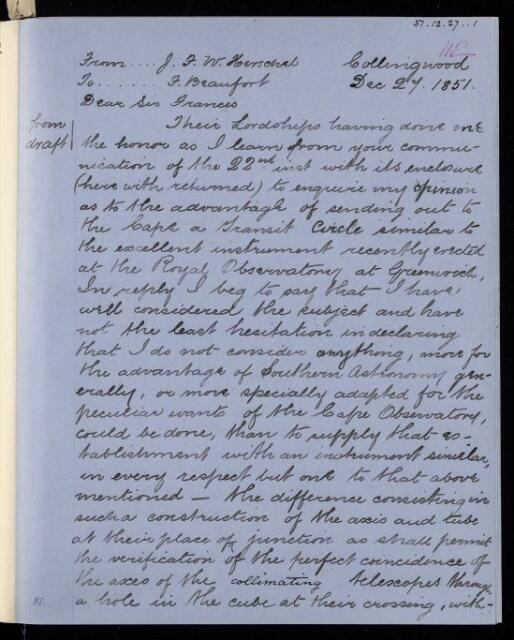 51.12.27..1
115
From .... J. F. W. Herschel Collingwood
To ...... F. Beaufort Dec 27. 1851.
Dear Sir Francis
from Their Lordships having done me
draft the honor as I learn from your commu-
nication of the 22nd inst with its enclosure
(herewith returned) to enquire my opinion
as to the advantage of sending out to
the Cape a Transit Circle similar to
the excellent instrument recently erected
at the Royal Observatory at Greenwich,
In reply I beg to say that I have
well considered the subject and have
not the least hesitation in declaring
that I do not consider anything, more for
the advantage of Southern Astronomy gen-
erally, or more specially adapted for the
peculiar wants of the Cape Observatory,
could be done, than to supply that es-
tablishment with an instrument similar,
in every respect but one to that above
mentioned — the difference consisting in
such a construction of the axis and tube
at their place of junction as shall permit
the verification of the perfect coincidence of
the axes of the collimating telescopes through
a hole in the cube at their crossing, with-